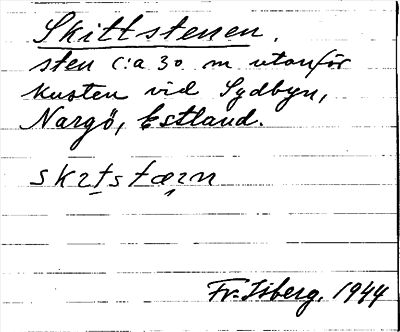 Skittstenen.
sten c:a 30 m utanför
kusten vid Sydbyn,
Nargö, Estland.
skɪt̠stæ̨ɪn
Fr. Isberg. 1944